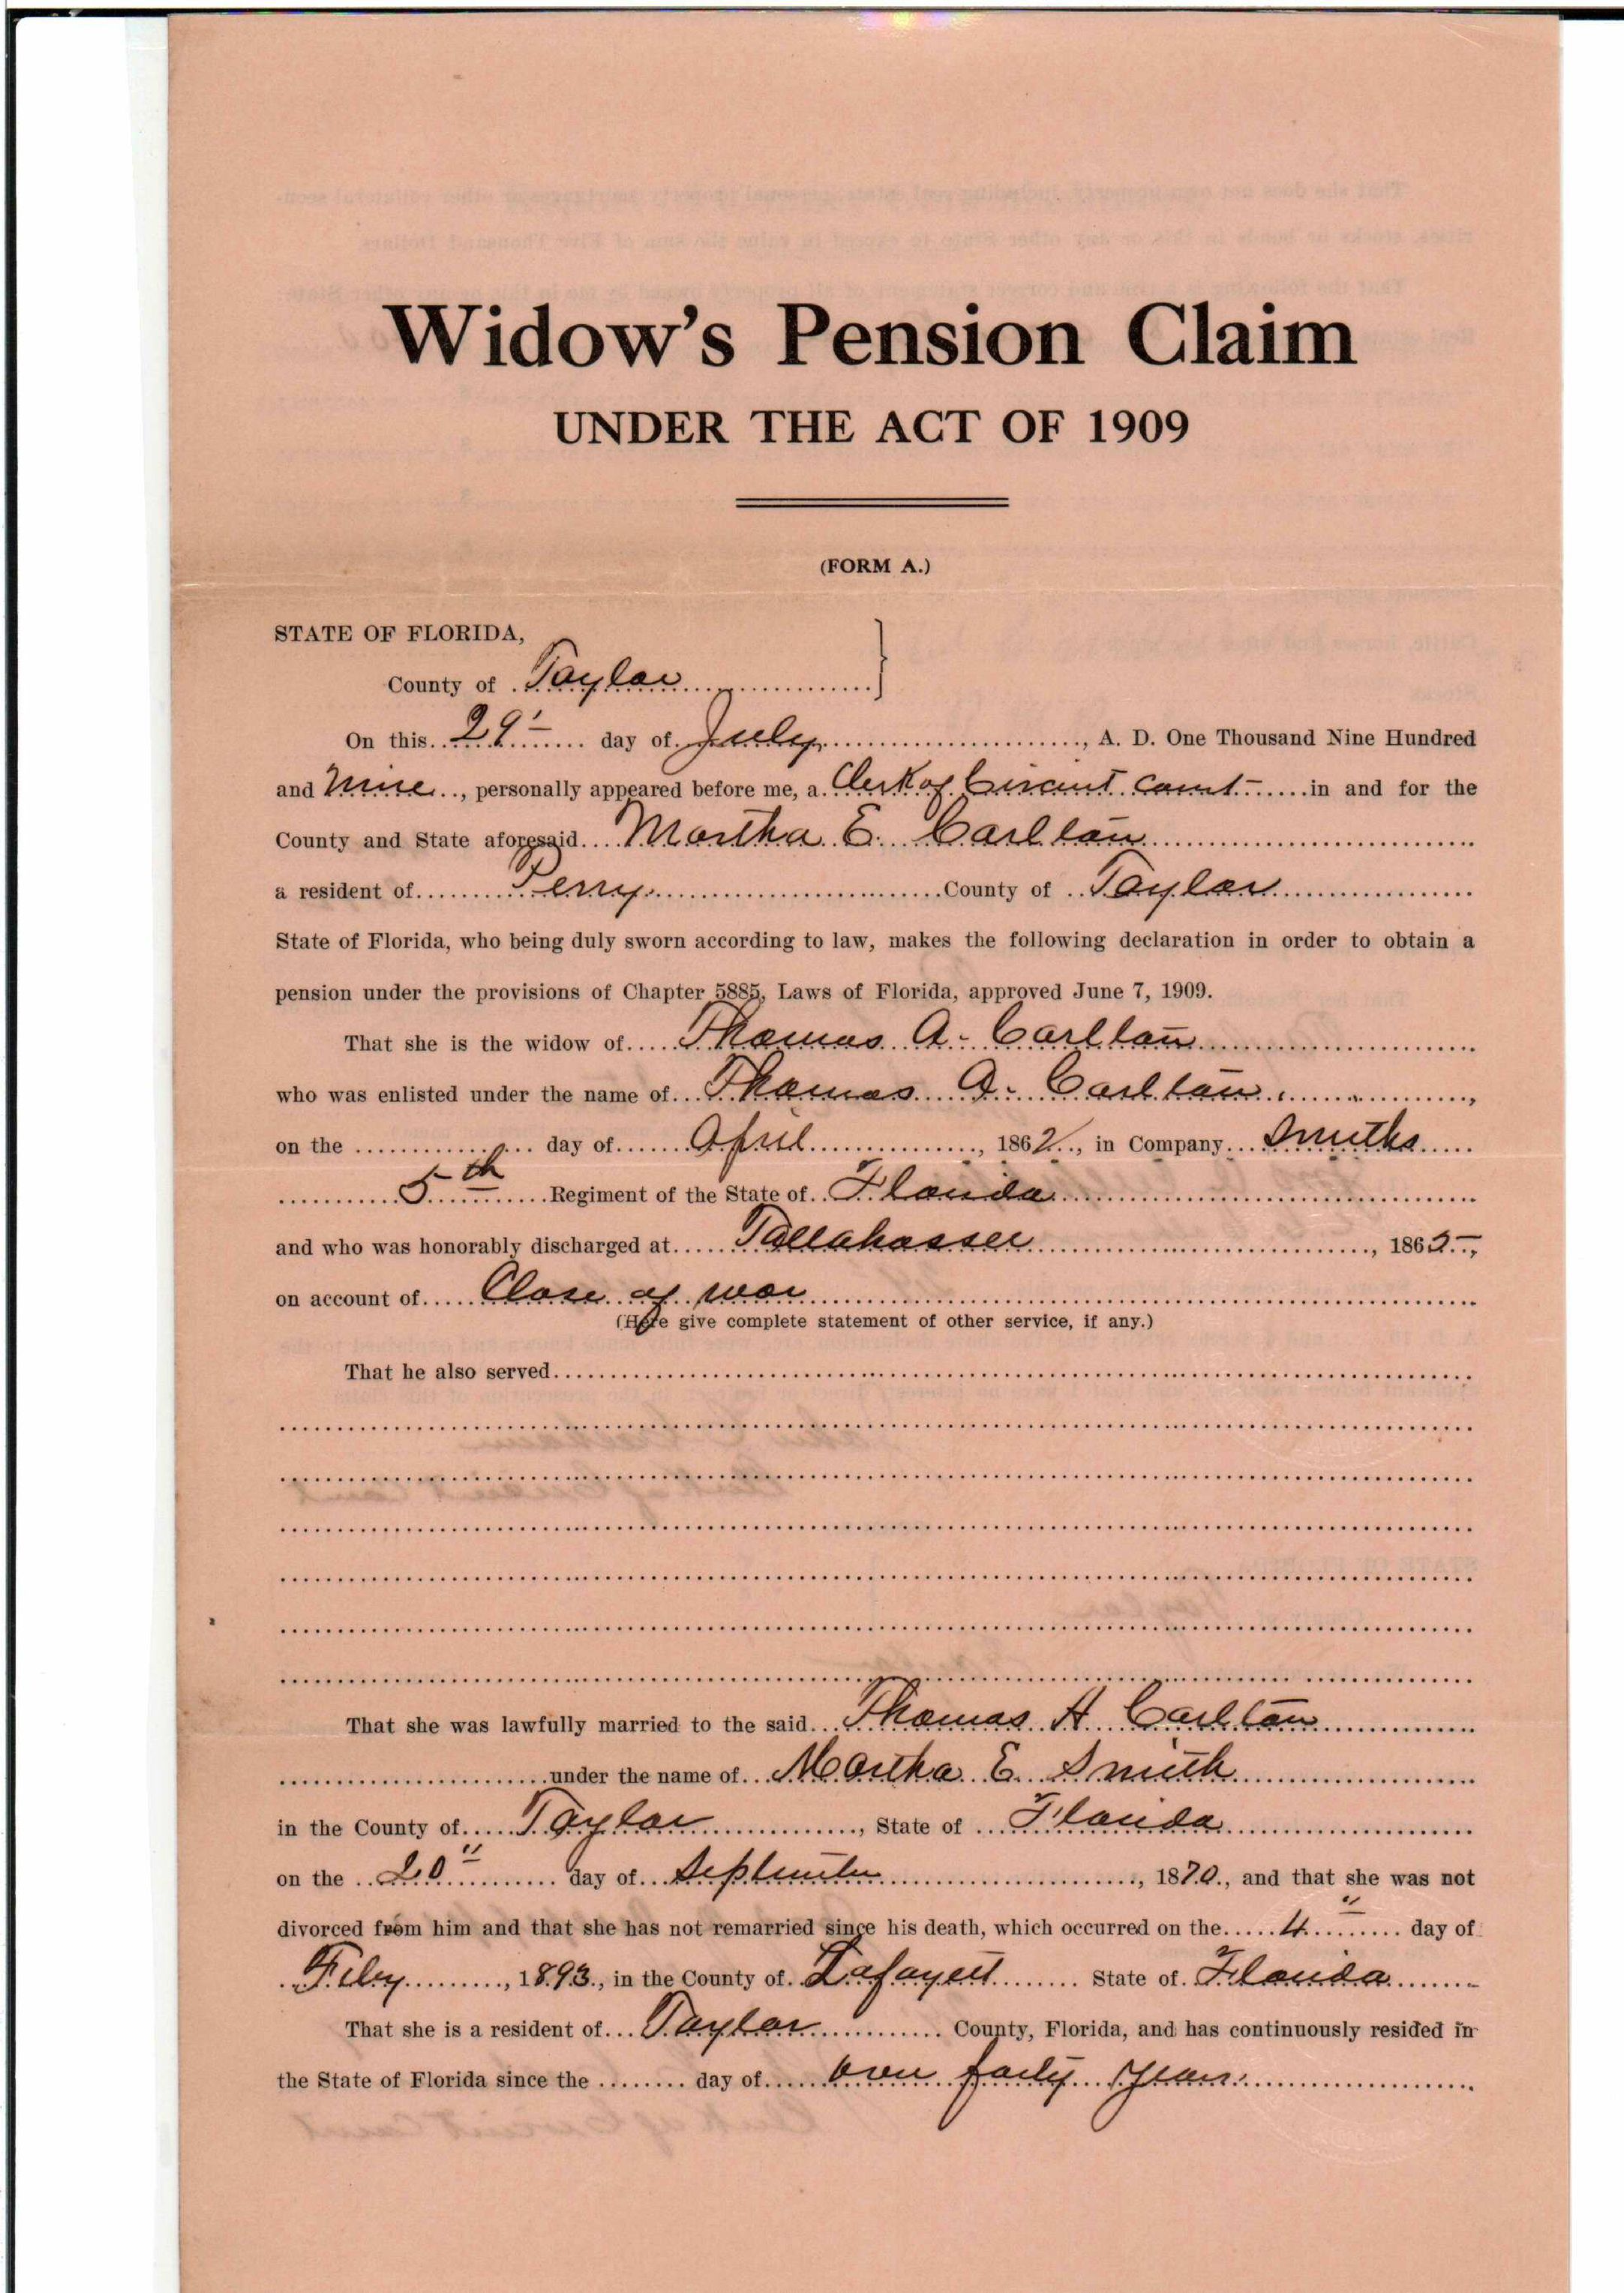 Widow's Pension Claim
UNDER THE ACT OF 1909
(FORM A.)
STATE OF FLORIDA,
County of Taylor
On this 29" day of July, A. D. One Thousand Nine Hundred
and Nine, personally appeared before me, a Clerk of Circuit Court in and for the
County and State aforesaid Martha E. Carlton
a resident of Perry County of Taylor
State of Florida, who being duly sworn according to law, makes the following declaration in order to obtain a
pension under the provisions of Chapter 5885, Laws of Florida, approved June 7, 1909.
That she is the widow of Thomas A. Carlton
who was enlisted under the name of Thomas A. Carlton,
on the day of April, 1862, in Company Smiths
5th Regiment of the State of Florida
and who was honorably discharged at Tallahassee, 1865,
on account of Close of war
(Here give complete statement of other service, if any.)
That he also served
That she was lawfully married to the said Thomas H Carlton
under the name of Martha E. Smith
in the County of Taylor, State of Florida
on the 20" day of September, 1870, and that she was not
divorced from him and that she has not remarried since his death, which occurred on the 4" day of
Feby, 1893, in the County of Lafayett State of Florida
That she is a resident of Taylor County, Florida, and has continuously resided in
the State of Florida since the day of over forty years